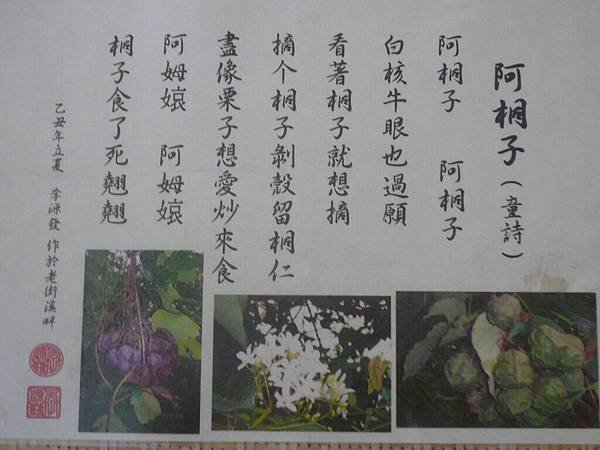 阿桐子（童詩）
阿桐子　阿桐子
白核牛眼也過願
看著桐子就想摘
摘个桐子剝殼留桐仁
盡像栗子想愛炒來食
阿姆娭　阿姆娭
桐子食了死翹翹
乙丑年立夏　李源發　作於老街溪畔